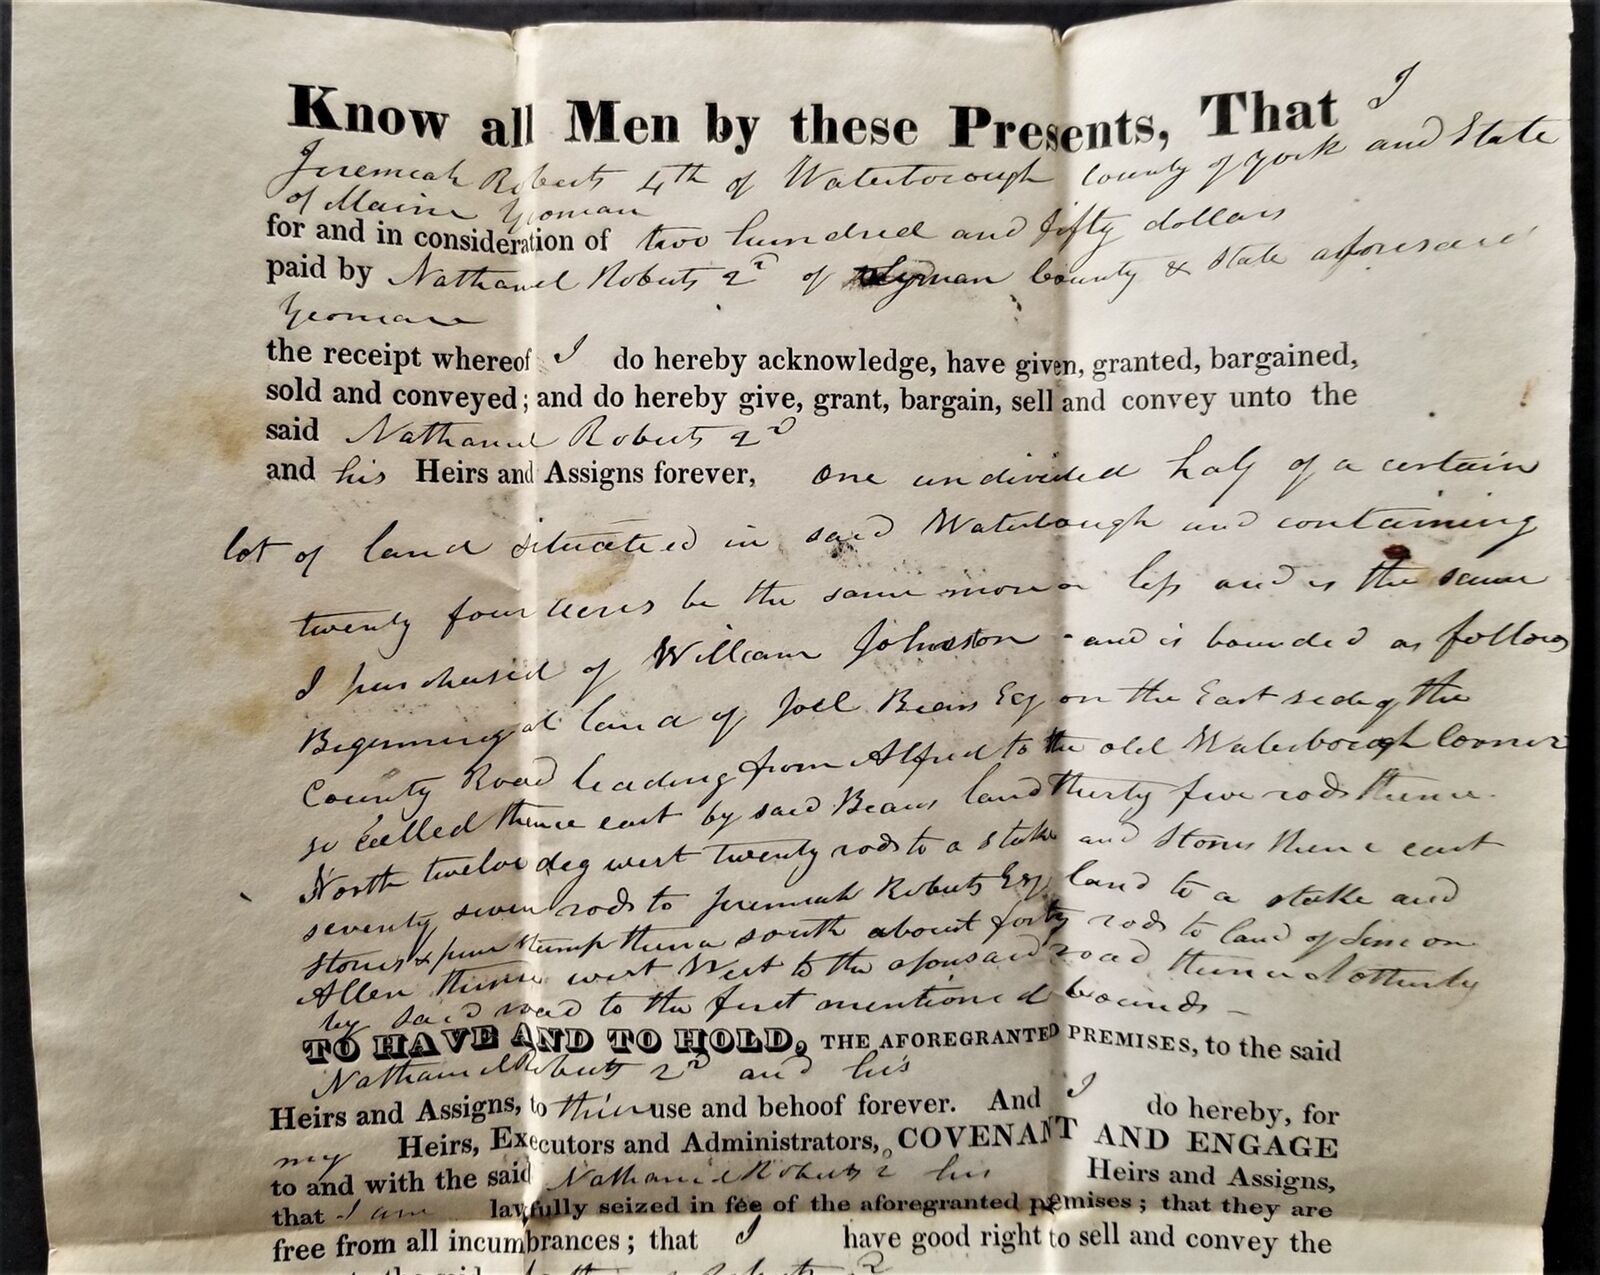 Know all Men by these Presents, That I
Jeremiah Roberts 4th of Waterborough County of York and State
of Maine Yeoman
for and in consideration of two hundred and fifty dollars
paid by Nathaniel Roberts 2d of Lyman County & State aforesaid
Yeoman
the receipt whereof I do hereby acknowledge, have given, granted, bargained,
sold and conveyed; and do hereby give, grant, bargain, sell and convey unto the
said Nathaniel Roberts 2d
and his Heirs and Assigns forever, one undivided half of a certain
lot of land situated in said Waterbough and containing
twenty four acres be the same more or less and is the same
I purchased of William Johnston - and is bounded as follows
Beginning at land of Joel Bean Esq on the East side of the
County Road leading from Alfred to the old Waterborough Corner
so called thence east by said Beans land thirty five rods thence
North twelve deg west twenty rods to a stake and stones thence east
seventy seven rods to Jeremiah Roberts Esq land to a stake and
stones & pine stump thence south about forty rods to land of Simeon
Allen thence west West to the aforesaid road thence Northerly
by said road to the first mentioned bounds -
TO HAVE AND TO HOLD, THE AFOREGRANTED PREMISES, to the said
Nathaniel Roberts 2d and his
Heirs and Assigns, to their use and behoof forever. And I do hereby, for
my Heirs, Executors and Administrators, COVENANT AND ENGAGE
to and with the said Nathaniel Roberts 2 his Heirs and Assigns,
that I am lawfully seized in fee of the aforegranted premises; that they are
free from all incumbrances; that I have good right to sell and convey the